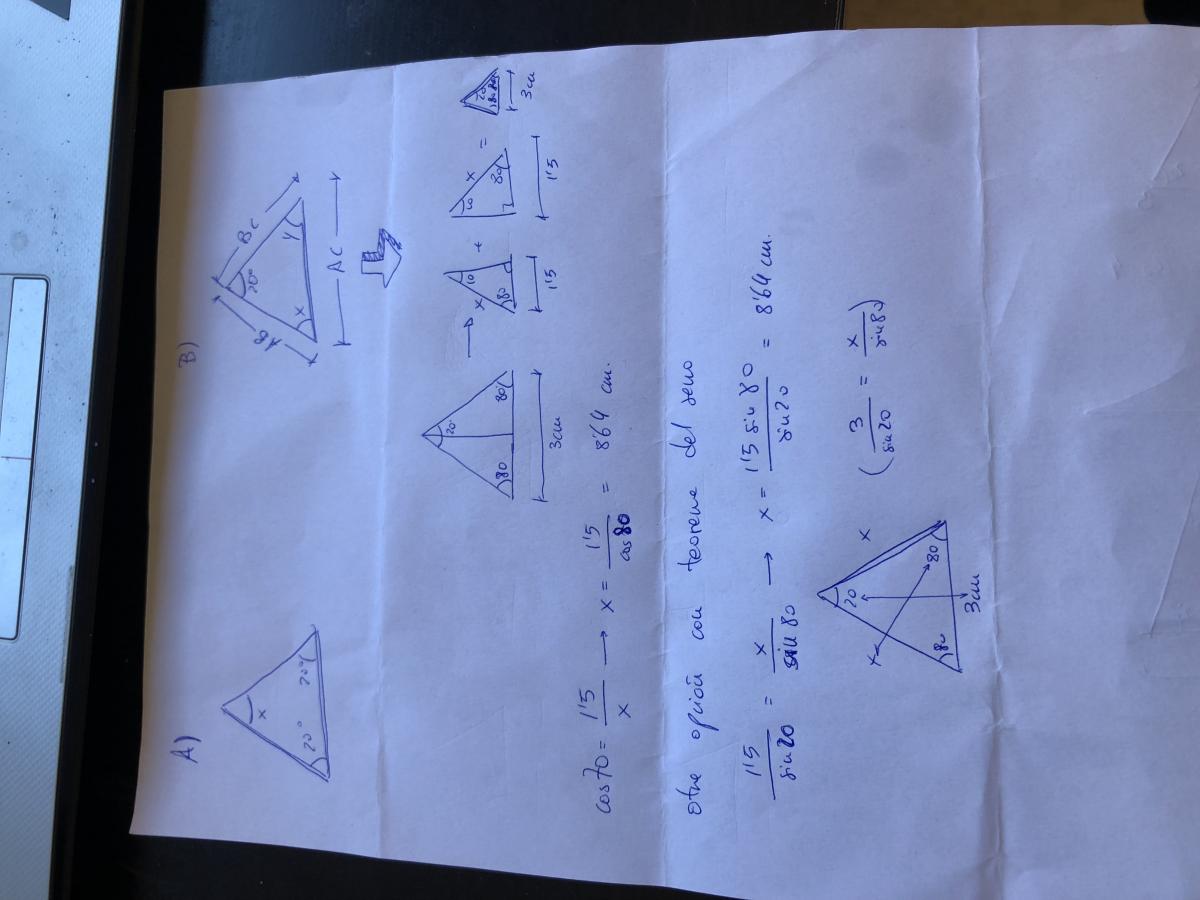 A)
x
20° 20°
B)
AB BC
20°
x y
AC
20°
80 80
3cm
x 10
80
1'5
+
x
80
1'5
=
20
3cm
cos70 = 1'5 / x → x = 1'5 / cos80 = 8'64 cm.
otra opción con teorema del seno
1'5 / sin20 = x / sin80 → x = 1'5 sin 80 / sin20 = 8'64 cm.
x x
20
80 80
3cm
(3 / sin20 = x / sin80)